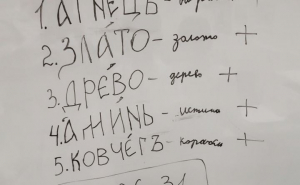 1. АГНЕЦЪ-
2. ЗЛА́ТО - золото +
3. ДРЕ́ВО - дерево +
4. АМИ́НЬ - истина +
5. КОВЧЕ́ГЪ - корабль +